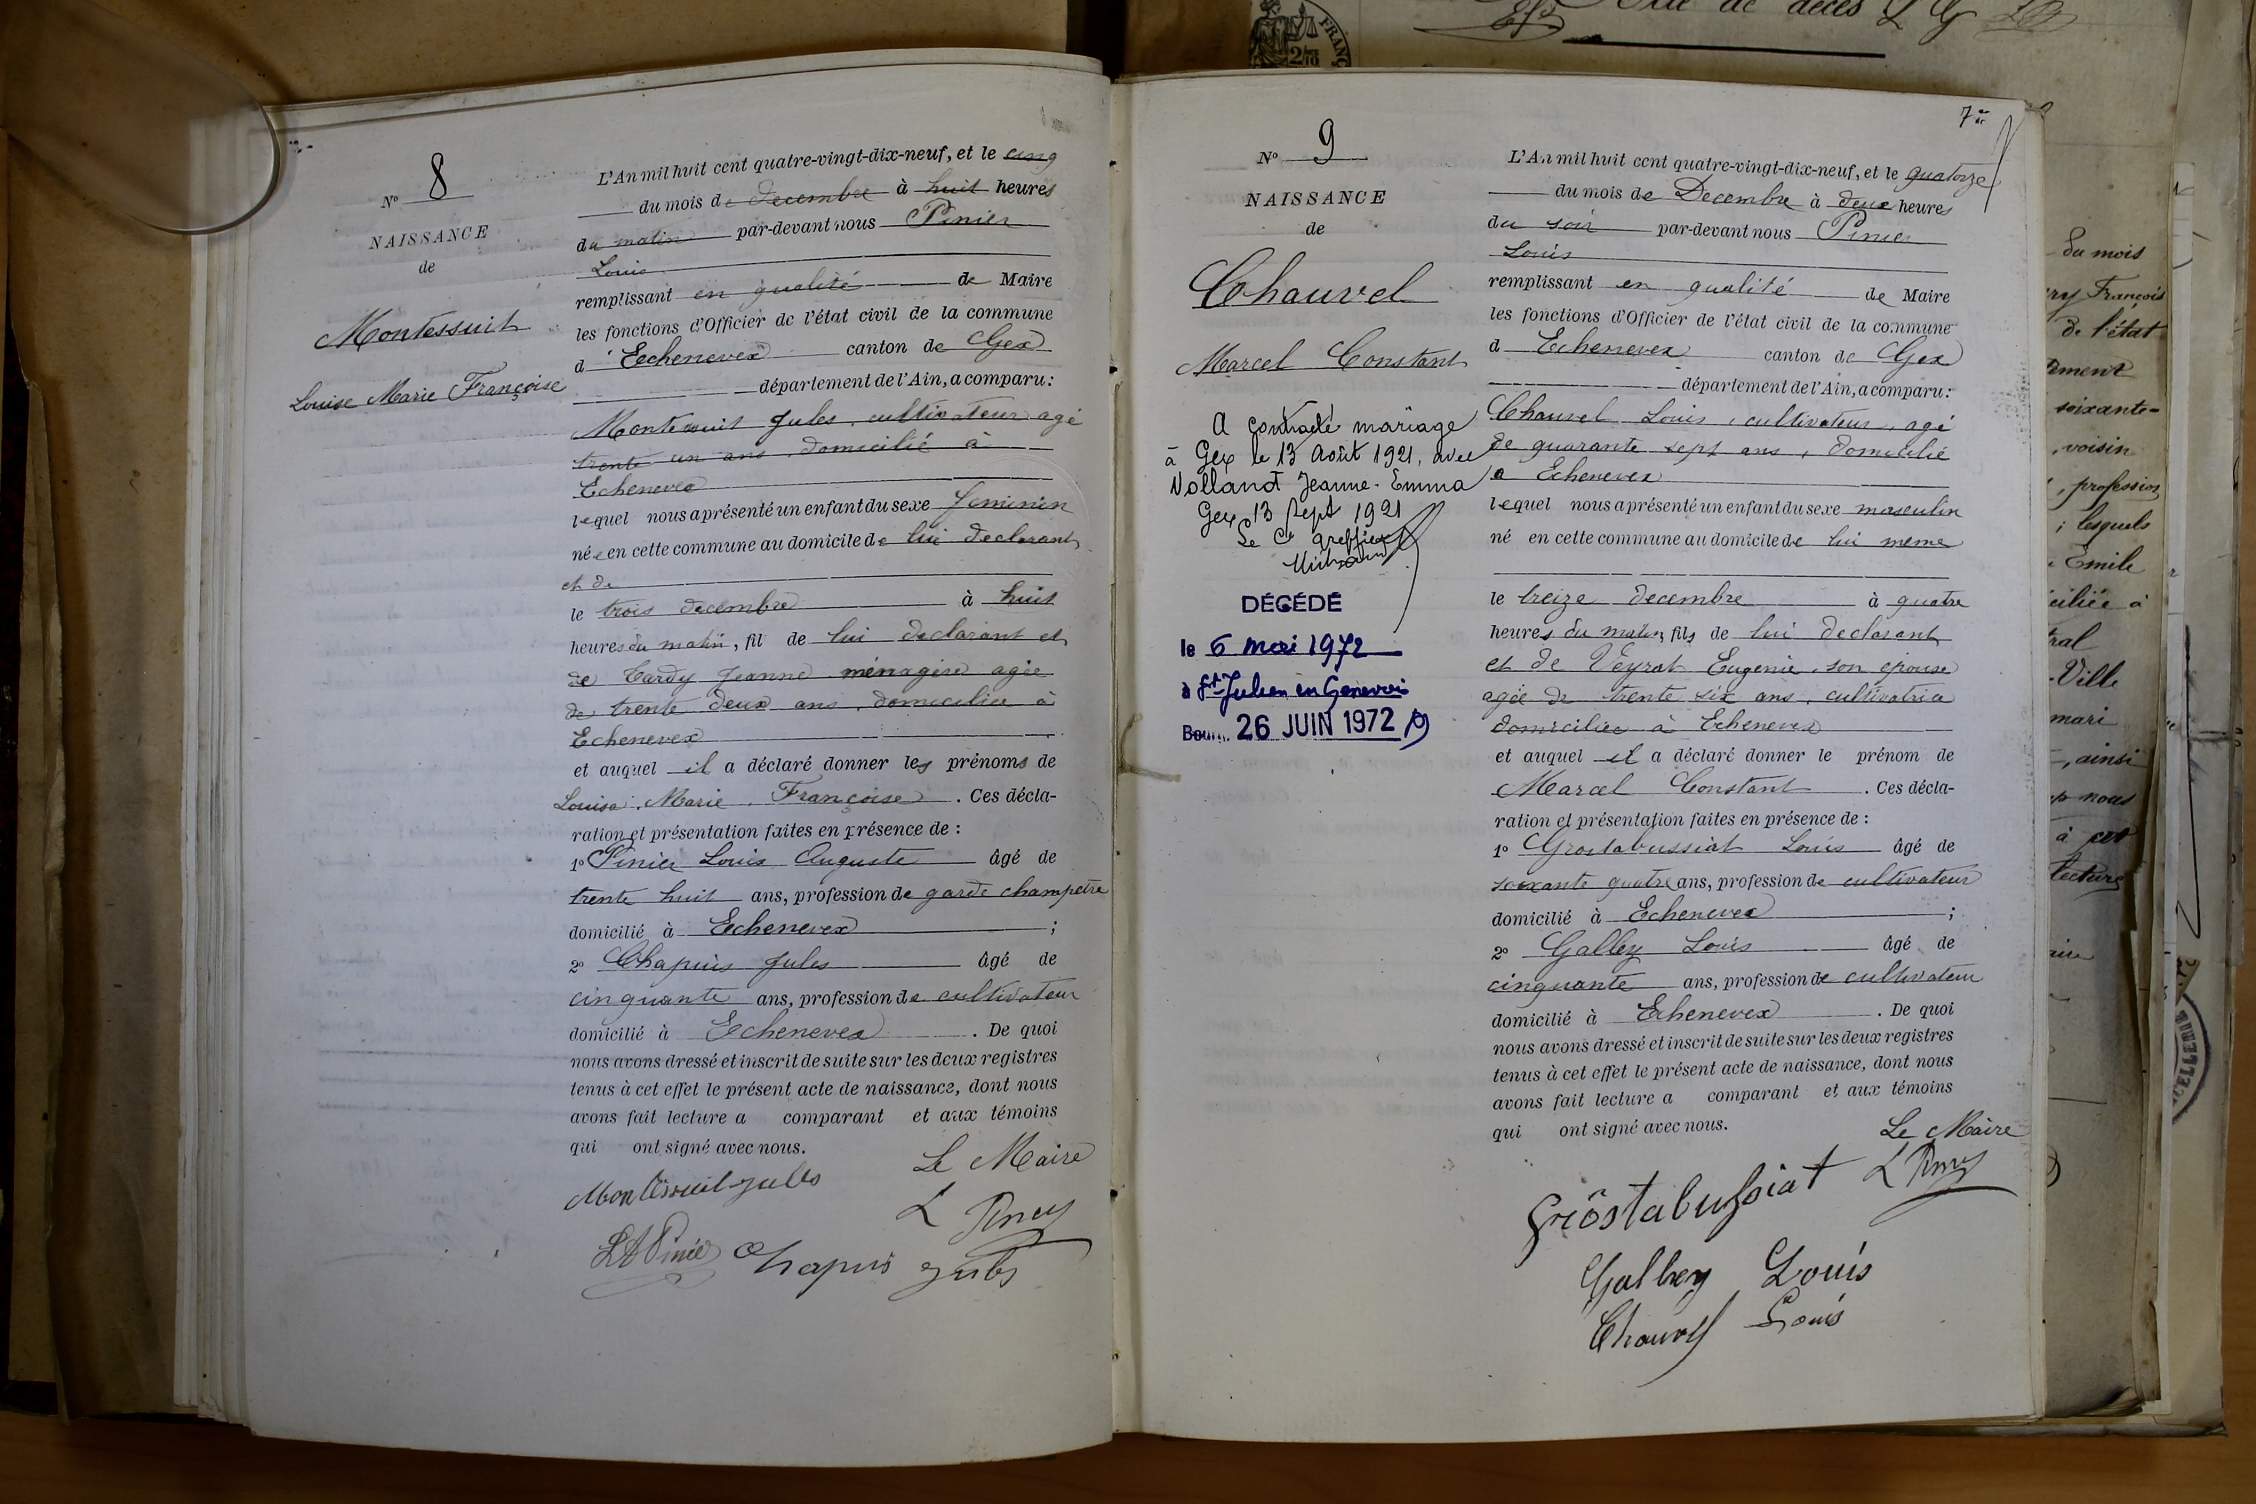 Nº 8
NAISSANCE
de
Montessuit
Louise Marie Françoise
L'An mil huit cent quatre-vingt-dix-neuf, et le cinq
du mois de decembre à huit heures
du matin par-devant nous Pinier
Louis
remplissant en qualité de Maire
les fonctions d'Officier de l'état civil de la commune
d'Echenevex canton de Gex
département de l'Ain, a comparu:
Montessuit Jules, cultivateur agé
trente un ans, domicilié à
Echenevex
lequel nous a présenté un enfant du sexe feminin
née en cette commune au domicile de lui declarant
et de
le trois decembre à huit
heures du matin, fil de lui declarant et
de Tardy Jeanne ménagère agée
de trente deux ans, domiciliée à
Echenevex
et auquel il a déclaré donner les prénoms de
Louise, Marie, Françoise. Ces décla-
ration et présentation faites en présence de :
1º Pinier Louis Auguste âgé de
trente huit ans, profession de garde champetre
domicilié à Echenevex ;
2º Chapuis Jules âgé de
cinquante ans, profession de cultivateur
domicilié à Echenevex. De quoi
nous avons dressé et inscrit de suite sur les deux registres
tenus à cet effet le présent acte de naissance, dont nous
avons fait lecture a comparant et aux témoins
qui ont signé avec nous.
Le Maire
Montessuit Jules
L Pinier
LA Pinier Chapuis Jules
7
Nº 9
NAISSANCE
de
Chauvel
Marcel Constant
A contracté mariage
à Gex le 13 Août 1921, avec
Volland Jeanne-Emma
Gex 13 Sept 1921
Le Cs Greffier
DÉCÉDÉ
le 6 mai 1972
à St Julien en Genevois
Bourg 26 JUIN 1972
L'An mil huit cent quatre-vingt-dix-neuf, et le quatorze
du mois de Decembre à deux heures
du soir par-devant nous Pinier
Louis
remplissant en qualité de Maire
les fonctions d'Officier de l'état civil de la commune
d Echenevex canton de Gex
département de l'Ain, a comparu:
Chauvel Louis, cultivateur, agé
de quarante sept ans, domicilié
a Echenevex
lequel nous a présenté un enfant du sexe masculin
né en cette commune au domicile de lui meme
le treize decembre à quatre
heures du matin, fils de lui declarant
et de Veyrat Eugenie, son epouse
agée de trente six ans, cultivatrice
domiciliée à Echenevex
et auquel il a déclaré donner le prénom de
Marcel Constant. Ces décla-
ration et présentation faites en présence de :
1º Grostabussiat Louis âgé de
soixante quatre ans, profession de cultivateur
domicilié à Echenevex ;
2º Galley Louis âgé de
cinquante ans, profession de cultivateur
domicilié à Echenevex. De quoi
nous avons dressé et inscrit de suite sur les deux registres
tenus à cet effet le présent acte de naissance, dont nous
avons fait lecture a comparant et aux témoins
qui ont signé avec nous.
Le Maire
L Pinier
Grôstabussiat
Galley Louis
Chauvel Louis
de décès
du mois
François
de l'état
soixante-
, voisin
, profession
; lesquels
Emile
-Ville
mari
, ainsi
nous
à cet
lecture